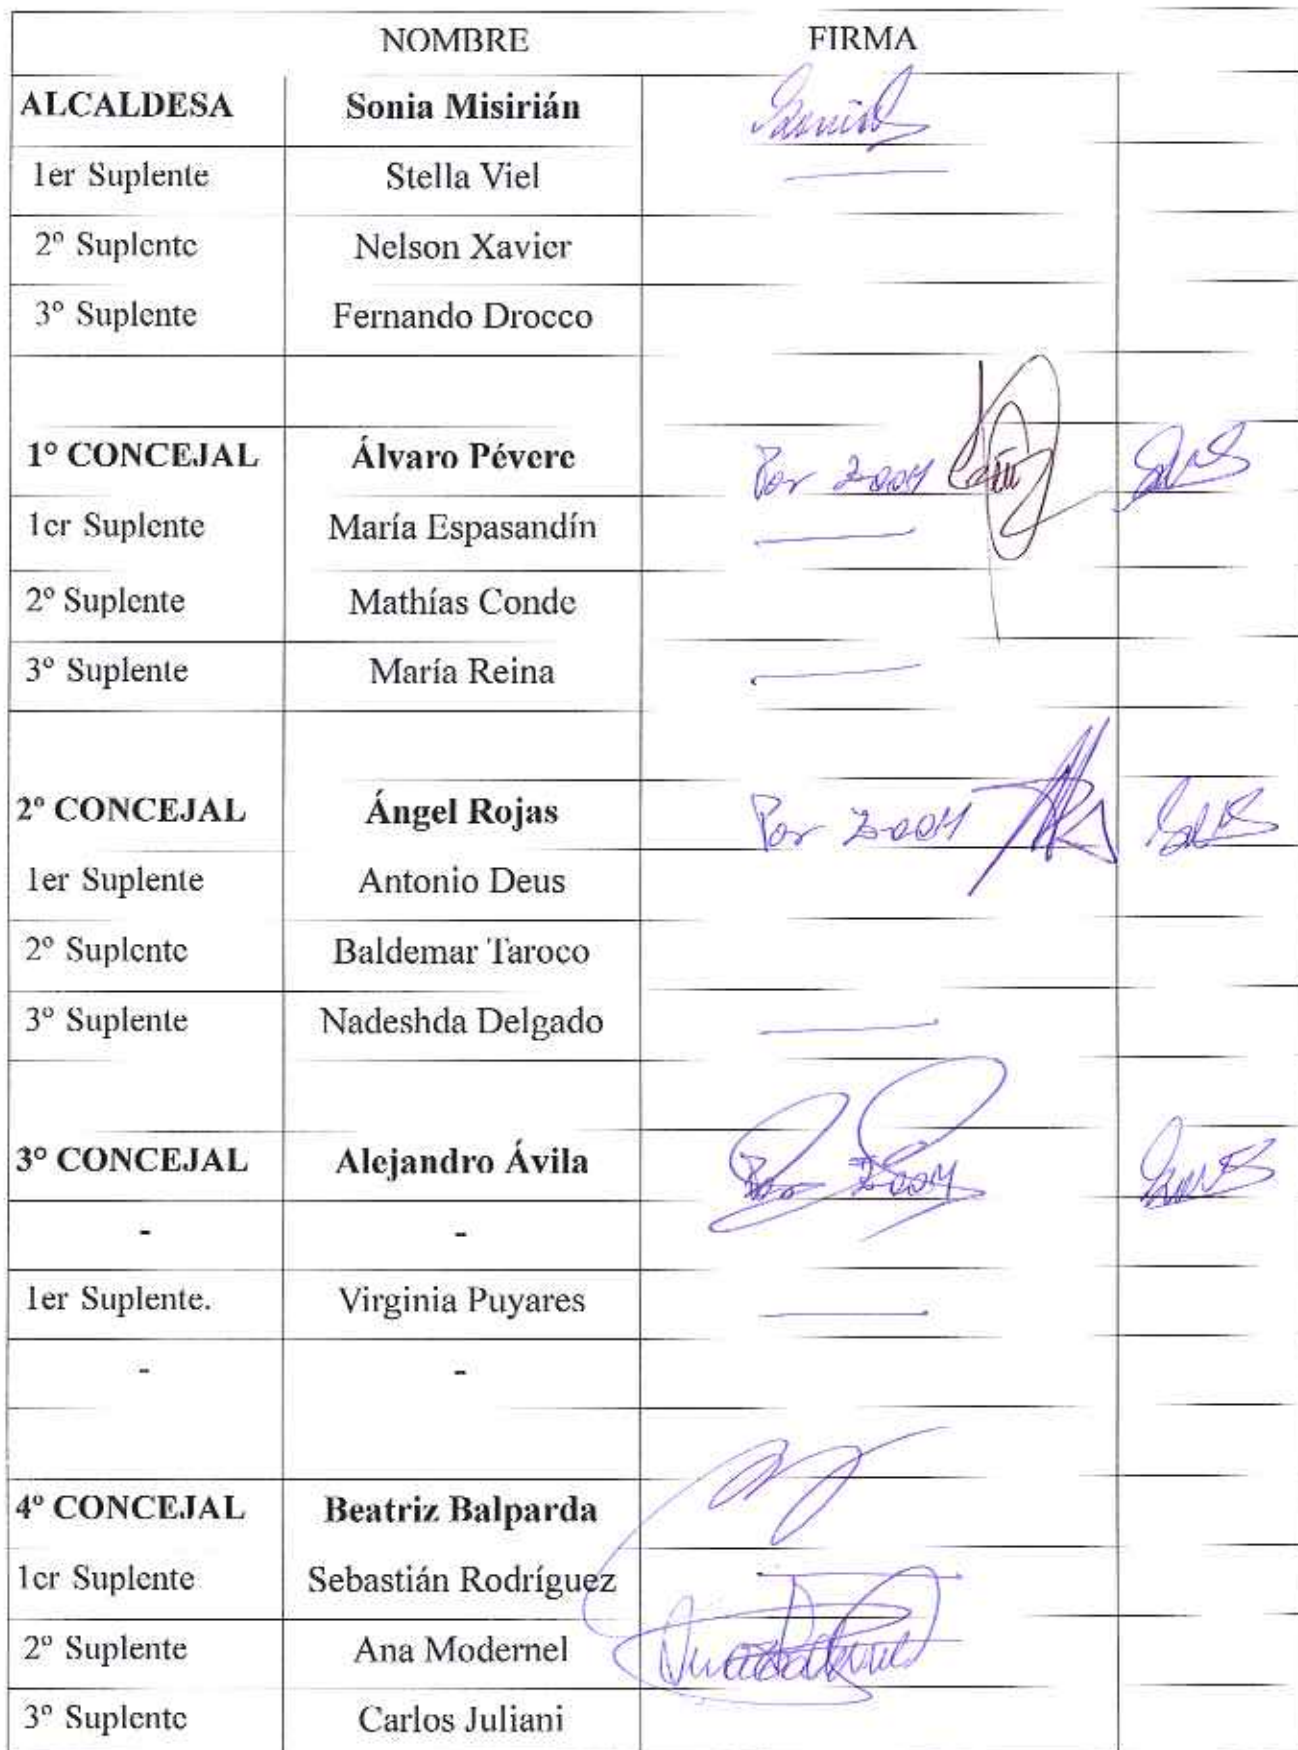 NOMBRE FIRMA
ALCALDESA Sonia Misirián
1er Suplente Stella Viel
2º Suplente Nelson Xavier
3º Suplente Fernando Drocco
1º CONCEJAL Álvaro Pévere Por Zoom
1er Suplente María Espasandín
2º Suplente Mathías Conde
3º Suplente María Reina
2º CONCEJAL Ángel Rojas Por Zoom
1er Suplente Antonio Deus
2º Suplente Baldemar Taroco
3º Suplente Nadeshda Delgado
3º CONCEJAL Alejandro Ávila Por Zoom
- -
1er Suplente. Virginia Puyares
- -
4º CONCEJAL Beatriz Balparda
1er Suplente Sebastián Rodríguez
2º Suplente Ana Modernel
3º Suplente Carlos Juliani